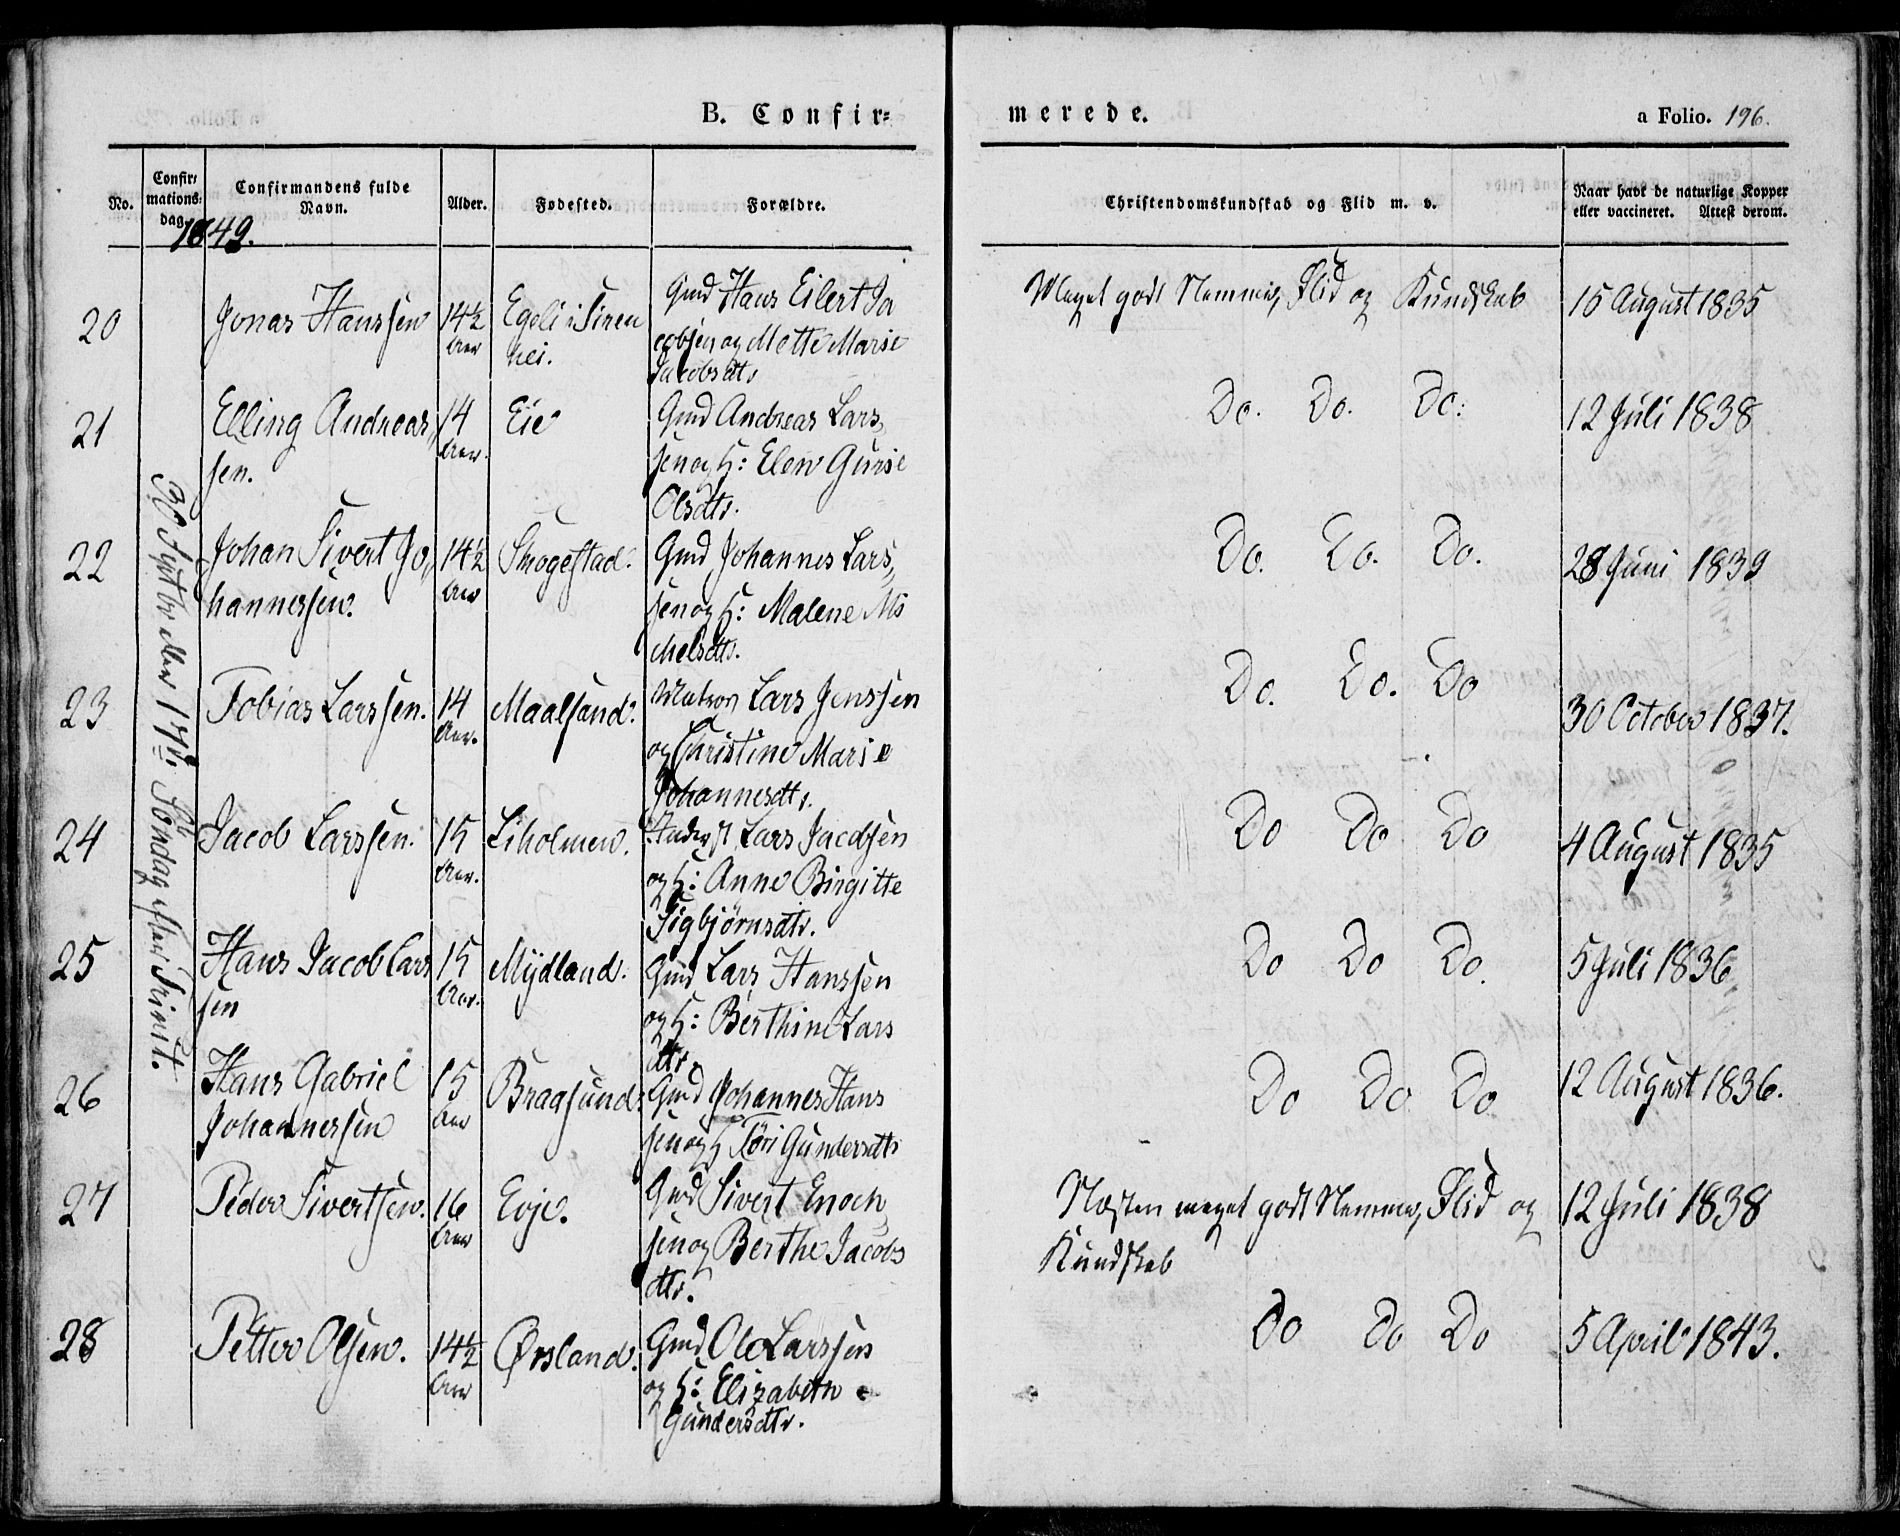 B. Confir=
merede.
a Folio. 196.
No.
Confir=
mations=
dag.
Confirmandens fulde
Navn.
Alder.
Fødested.
Forældre.
Christendomskundskab og Flid m. v.
Naar havt de naturlige Kopper
eller vaccineret. Attest derom.
1849.
30 Septbr eller 17de Søndag efter Trinit.
20 Jonas Hanssen 14½ Egeli i Siren Gmd Hans Eilert Ja Meget godt Nemme, Flid og Kundskab 15 August 1835
Aar hei. cobsen og Mette Marie
Jacobsdtr
21 Elling Andreas 14 Eie Gmd Andreas Lars Do. Do. Do. 12 Juli 1838
sen. Aar. sen og H: Elen Gurie
Olsdtr.
22 Johan Sivert Jo 14½ Skogestad. Gmd Johannes Lars Do. Do. Do. 28 Juni 1839
hannessen. Aar sen og H: Malene Mi
chelsdtr.
23 Tobias Larssen. 14 Maalsand. Matros Lars Jenssen Do. Do. Do 30 October 1837.
Aar. og Christine Marie
Johannesdtr.
24 Jacob Larssen. 15 Liholmen. Lars Jacobsen Do Do Do 4 August 1835
Aar. og H: Anne Birgitte
Sigbjørnsdtr.
25 Hans Jacob Lars 15 Mydland. Gmd Lars Hanssen Do Do Do. 5 Juli 1836
sen Aar. og H: Berthine Lars
dtr.
26 Hans Gabriel 15 Braasund. Gmd Johannes Hans Do Do Do 12 August 1836.
Johannessen Aar sen og H Tøri Gundersdtr
27 Peder Sivertsen. 16 Evje. Gmd Sivert Enoch Næsten meget godt Nemme, Flid og 12 Juli 1838
Aar sen og Berthe Jacobs Kundskab
dtr.
28 Petter Olsen. 14½ Ørsland. Gmd Ole Larssen Do Do Do 5 April 1843.
Aar og H: Elizabeth
Gundersdtr.